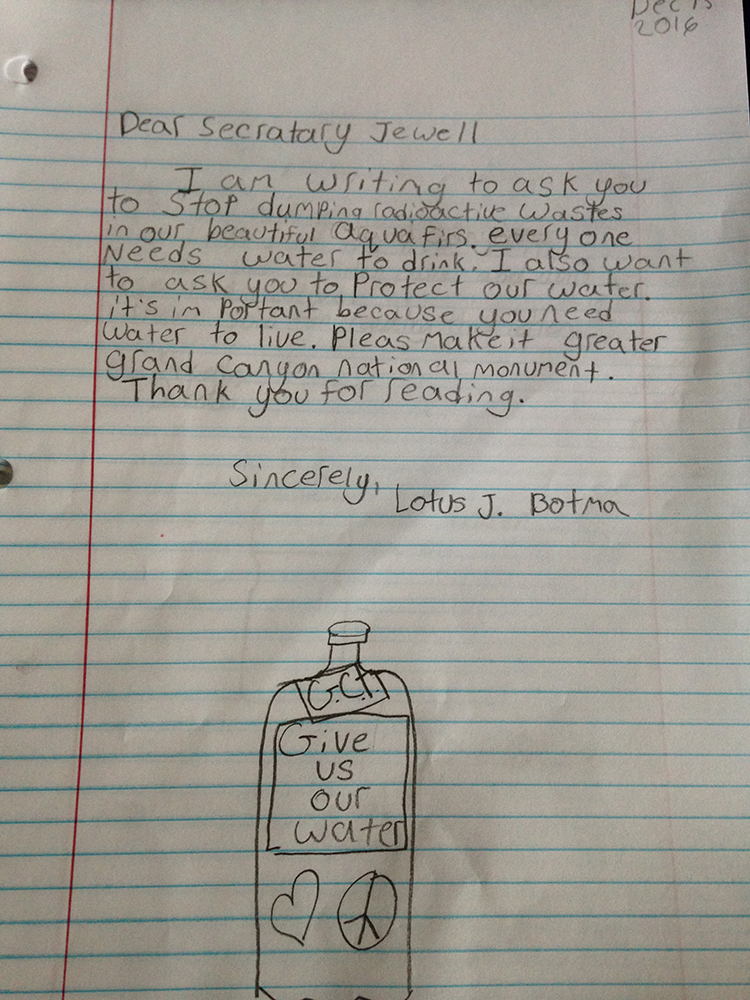 Dec 15
2016
Dear Secratary Jewell
I am writing to ask you
to Stop dumping radioactive wastes
in our beautiful aquafirs. everyone
Needs water to drink. I also want
to ask you to Protect our water.
it's im Portant because you need
water to live. Pleas Make it greater
grand Canyon national monument.
Thank you for reading.
Sincerely,
Lotus J. Botma
Give
us
our
water